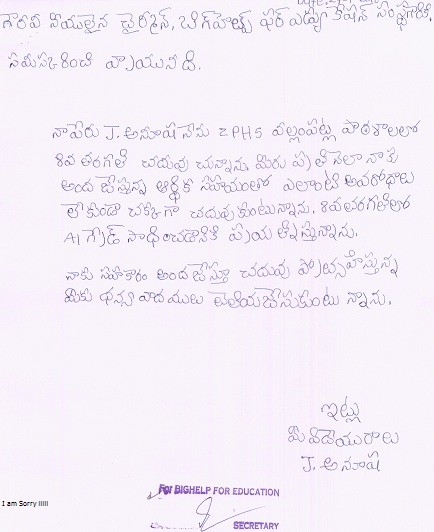 గౌరవనీయులైన చైర్మన్, బిగ్‌హెల్ప్ ఫర్ ఎడ్యుకేషన్ సంస్థగారికి,
నమస్కరించి వ్రాయునది.
నాపేరు J. అనూష నేను ZPHS వల్లంపట్ల పాఠశాలలో
8వ తరగతి చదువు చున్నాను. మీరు ప్రతి నెలా నాకు
అంద జేస్తున్న ఆర్థిక సహాయంతో ఎలాంటి అవరోధాలు
లేకుండా చక్కగా చదువుకుంటున్నాను. 8వతరగతిలో
A1 గ్రేడ్ సాధించడానికి ప్రయత్నిస్తున్నాను.
నాకు సహకారం అంద జేస్తూ చదువు ప్రోత్సహిస్తున్న
మీకు ధన్యవాదములు తెలియజేసుకుంటున్నాను.
ఇట్లు
మీ విధేయురాలు
J. అనూష
For BIGHELP FOR EDUCATION
I am Sorry lllll
SECRETARY